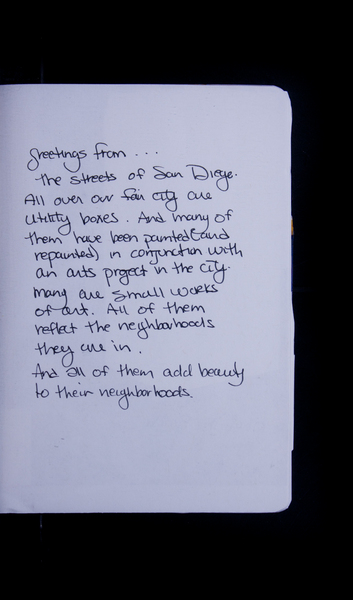 Greetings from ...
the streets of San Diego.
All over our fair city are
utility boxes. And many of
them have been painted (and
repainted) in conjunction with
an arts project in the city.
Many are small works
of art. All of them
reflect the neighborhoods
they are in.
And all of them add beauty
to their neighborhoods.